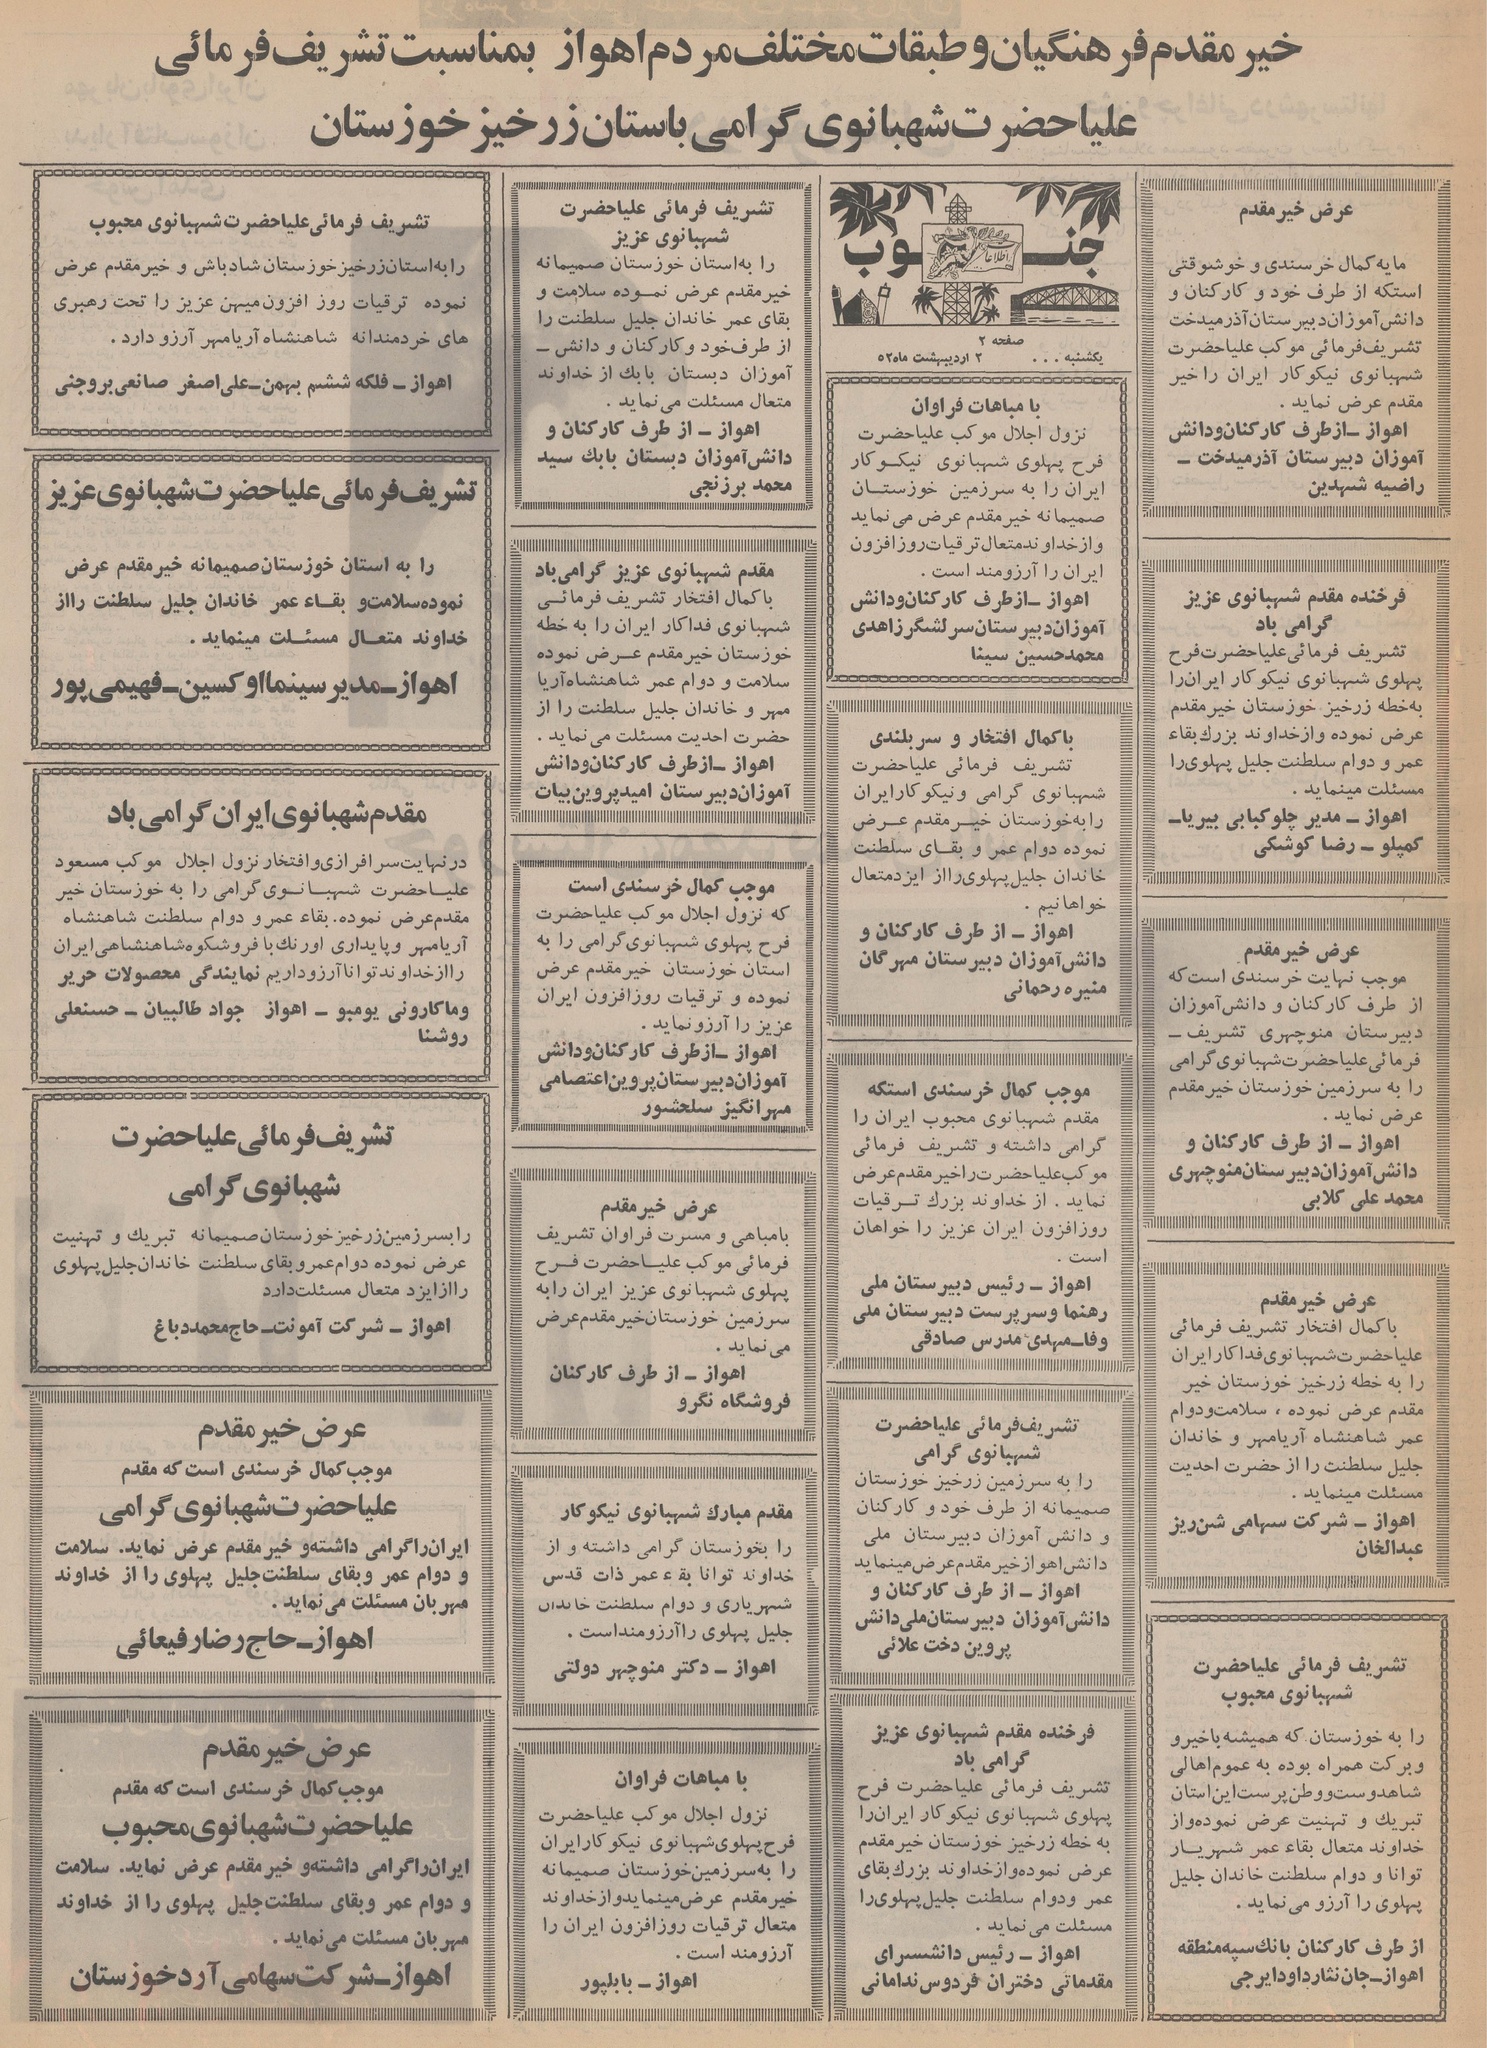 خیر مقدم فرهنگیان و طبقات مختلف مردم اهواز بمناسبت تشریف فرمائی
علیاحضرت شهبانوی گرامی باستان زرخیز خوزستان
عرض خیر مقدم
مایه کمال خرسندی و خوشوقتی
استکه از طرف خود و کارکنان و
دانش‌آموزان دبیرستان آذرمیدخت
تشریف فرمائی موکب علیاحضرت
شهبانوی نیکوکار ایران را خیر
مقدم عرض نماید .
اهواز ــ از طرف کارکنان و دانش
آموزان دبیرستان آذرمیدخت ــ
راضیه شهدین
فرخنده مقدم شهبانوی عزیز
گرامی باد
تشریف فرمائی علیاحضرت فرح
پهلوی شهبانوی نیکوکار ایران را
به خطه زرخیز خوزستان خیر مقدم
عرض نموده و از خداوند بزرك بقاء
عمر و دوام سلطنت جلیل پهلوی را
مسئلت مینماید .
اهواز ــ مدیر چلوکبابی بیریا ــ
کمپلو ــ رضا کوشکی
عرض خیر مقدم
موجب نهایت خرسندی است که
از طرف کارکنان و دانش‌آموزان
دبیرستان منوچهری تشریف ــ
فرمائی علیاحضرت شهبانوی گرامی
را به سرزمین خوزستان خیر مقدم
عرض نماید .
اهواز ــ از طرف کارکنان و
دانش‌آموزان دبیرستان منوچهری
محمد علی کلابی
عرض خیر مقدم
با کمال افتخار تشریف فرمائی
علیاحضرت شهبانوی فداکار ایران
را به خطه زرخیز خوزستان خیر
مقدم عرض نموده ، سلامت و دوام
عمر شاهنشاه آریامهر و خاندان
جلیل سلطنت را از حضرت احدیت
مسئلت مینماید .
اهواز ــ شرکت سهامی شن‌ریز
عبدالخان
تشریف فرمائی علیاحضرت
شهبانوی محبوب
را به خوزستان که همیشه با خیر و
و برکت همراه بوده به عموم اهالی
شاهدوست و وطن پرست این استان
تبریك و تهنیت عرض نموده و از
خداوند متعال بقاء عمر شهریار
توانا و دوام سلطنت خاندان جلیل
پهلوی را آرزو می نماید .
از طرف کارکنان بانك سپه منطقه
اهواز ــ جان نثار داود ایرجی
جنوب
اطلاعات
صفحه ۲
یکشنبه ... ۲ اردیبهشت ماه ۵۲
با مباهات فراوان
نزول اجلال موکب علیاحضرت
فرح پهلوی شهبانوی نیکوکار
ایران را به سرزمین خوزستان
صمیمانه خیر مقدم عرض می نماید
و از خداوند متعال ترقیات روزافزون
ایران را آرزومند است .
اهواز ــ از طرف کارکنان و دانش
آموزان دبیرستان سرلشگر زاهدی
محمد حسین سینا
با کمال افتخار و سربلندی
تشریف فرمائی علیاحضرت
شهبانوی گرامی و نیکوکار ایران
را به خوزستان خیر مقدم عرض
نموده دوام عمر و بقای سلطنت
خاندان جلیل پهلوی را از ایزد متعال
خواهانیم .
اهواز ــ از طرف کارکنان و
دانش‌آموزان دبیرستان مهرگان
منیره رحمانی
موجب کمال خرسندی استکه
مقدم شهبانوی محبوب ایران را
گرامی داشته و تشریف فرمائی
موکب علیاحضرت را خیر مقدم عرض
نماید . از خداوند بزرك ترقیات
روزافزون ایران عزیز را خواهان
است .
اهواز ــ رئیس دبیرستان ملی
رهنما و سرپرست دبیرستان ملی
وفا ــ مهدی مدرس صادقی
تشریف فرمائی علیاحضرت
شهبانوی گرامی
را به سرزمین زرخیز خوزستان
صمیمانه از طرف خود و کارکنان
و دانش آموزان دبیرستان ملی
دانش اهواز خیر مقدم عرض مینماید
اهواز ــ از طرف کارکنان و
دانش‌آموزان دبیرستان ملی دانش
پروین دخت علائی
فرخنده مقدم شهبانوی عزیز
گرامی باد
تشریف فرمائی علیاحضرت فرح
پهلوی شهبانوی نیکوکار ایران را
به خطه زرخیز خوزستان خیر مقدم
عرض نموده و از خداوند بزرك بقای
عمر و دوام سلطنت جلیل پهلوی را
مسئلت می نماید .
اهواز ــ رئیس دانشسرای
مقدماتی دختران فردوس ندامانی
تشریف فرمائی علیاحضرت
شهبانوی عزیز
را به استان خوزستان صمیمانه
خیر مقدم عرض نموده سلامت و
بقای عمر خاندان جلیل سلطنت را
از طرف خود و کارکنان و دانش ــ
آموزان دبستان بابك از خداوند
متعال مسئلت می نماید .
اهواز ــ از طرف کارکنان و
دانش‌آموزان دبستان بابك سید
محمد برزنجی
مقدم شهبانوی عزیز گرامی باد
با کمال افتخار تشریف فرمائی
شهبانوی فداکار ایران را به خطه
خوزستان خیر مقدم عرض نموده
سلامت و دوام عمر شاهنشاه آریا
مهر و خاندان جلیل سلطنت را از
حضرت احدیت مسئلت می نماید .
اهواز ــ از طرف کارکنان و دانش
آموزان دبیرستان امید پروین بیات
موجب کمال خرسندی است
که نزول اجلال موکب علیاحضرت
فرح پهلوی شهبانوی گرامی را به
استان خوزستان خیر مقدم عرض
نموده و ترقیات روزافزون ایران
عزیز را آرزو نماید .
اهواز ــ از طرف کارکنان و دانش
آموزان دبیرستان پروین اعتصامی
مهرانگیز سلحشور
عرض خیر مقدم
با مباهی و مسرت فراوان تشریف
فرمائی موکب علیاحضرت فرح
پهلوی شهبانوی عزیز ایران را به
سرزمین خوزستان خیر مقدم عرض
می نماید .
اهواز ــ از طرف کارکنان
فروشگاه نگرو
مقدم مبارك شهبانوی نیکوکار
را بخوزستان گرامی داشته و از
خداوند توانا بقاء عمر ذات قدس
شهریاری و دوام سلطنت خاندان
جلیل پهلوی را آرزومند است .
اهواز ــ دکتر منوچهر دولتی
با مباهات فراوان
نزول اجلال موکب علیاحضرت
فرح پهلوی شهبانوی نیکوکار ایران
را به سرزمین خوزستان صمیمانه
خیر مقدم عرض مینماید و از خداوند
متعال ترقیات روزافزون ایران را
آرزومند است .
اهواز ــ بابلپور
تشریف فرمائی علیاحضرت شهبانوی محبوب
را به استان زرخیز خوزستان شادباش و خیر مقدم عرض
نموده ترقیات روز افزون میهن عزیز را تحت رهبری
های خردمندانه شاهنشاه آریامهر آرزو دارد .
اهواز ــ فلکه ششم بهمن ــ علی اصغر صانعی بروجنی
تشریف فرمائی علیاحضرت شهبانوی عزیز
را به استان خوزستان صمیمانه خیر مقدم عرض
نموده سلامت و بقاء عمر خاندان جلیل سلطنت را از
خداوند متعال مسئلت مینماید .
اهواز ــ مدیر سینما اوکسین ــ فهیمی پور
مقدم شهبانوی ایران گرامی باد
در نهایت سرافرازی و افتخار نزول اجلال موکب مسعود
علیاحضرت شهبانوی گرامی را به خوزستان خیر
مقدم عرض نموده. بقاء عمر و دوام سلطنت شاهنشاه
آریامهر و پایداری اورنك با فروشکوه شاهنشاهی ایران
را از خداوند توانا آرزو داریم نمایندگی محصولات حریر
و ماکارونی یومبو ــ اهواز جواد طالبیان ــ حسنعلی
روشنا
تشریف فرمائی علیاحضرت
شهبانوی گرامی
را بسرزمین زرخیز خوزستان صمیمانه تبریك و تهنیت
عرض نموده دوام عمر و بقای سلطنت خاندان جلیل پهلوی
را از ایزد متعال مسئلت دارد
اهواز ــ شرکت آمونت ــ حاج محمد دباغ
عرض خیر مقدم
موجب کمال خرسندی است که مقدم
علیاحضرت شهبانوی گرامی
ایران را گرامی داشته و خیر مقدم عرض نماید. سلامت
و دوام عمر و بقای سلطنت جلیل پهلوی را از خداوند
مهربان مسئلت می نماید .
اهواز ــ حاج رضا رفیعائی
عرض خیر مقدم
موجب کمال خرسندی است که مقدم
علیاحضرت شهبانوی محبوب
ایران را گرامی داشته و خیر مقدم عرض نماید. سلامت
و دوام عمر و بقای سلطنت جلیل پهلوی را از خداوند
مهربان مسئلت می نماید .
اهواز ــ شرکت سهامی آرد خوزستان